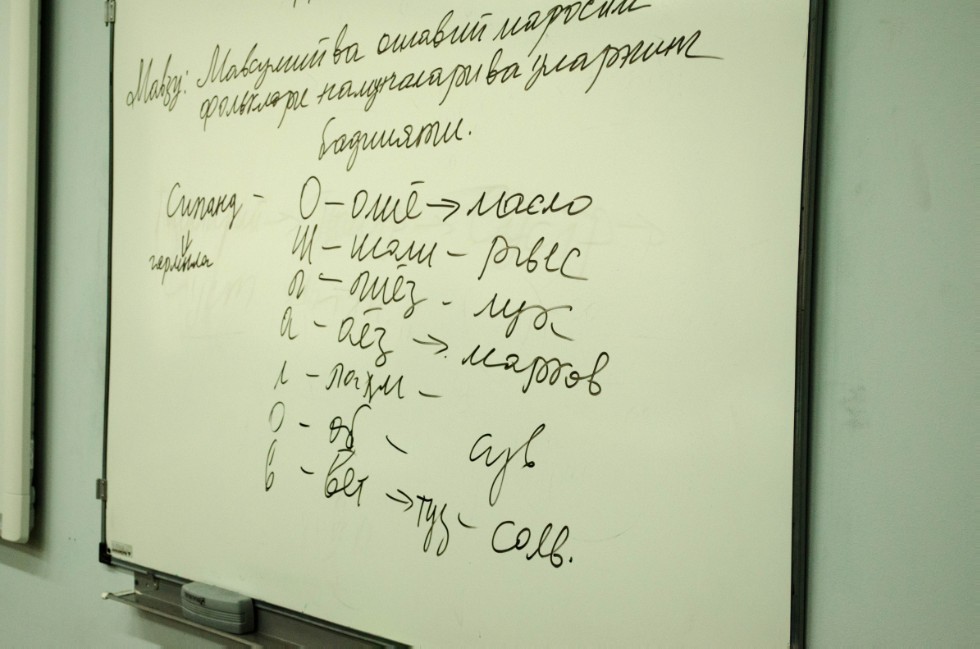 Мавзу: Мавсумий ва оилавий маросим
фольклори намуналари ва уларнинг
бадиияти.
Сипанд -
О - ошё → масло
Ш - шоли - рис
а - аёз → марков
л - лахм -
О - об - сув
в - вет → туз - соль.